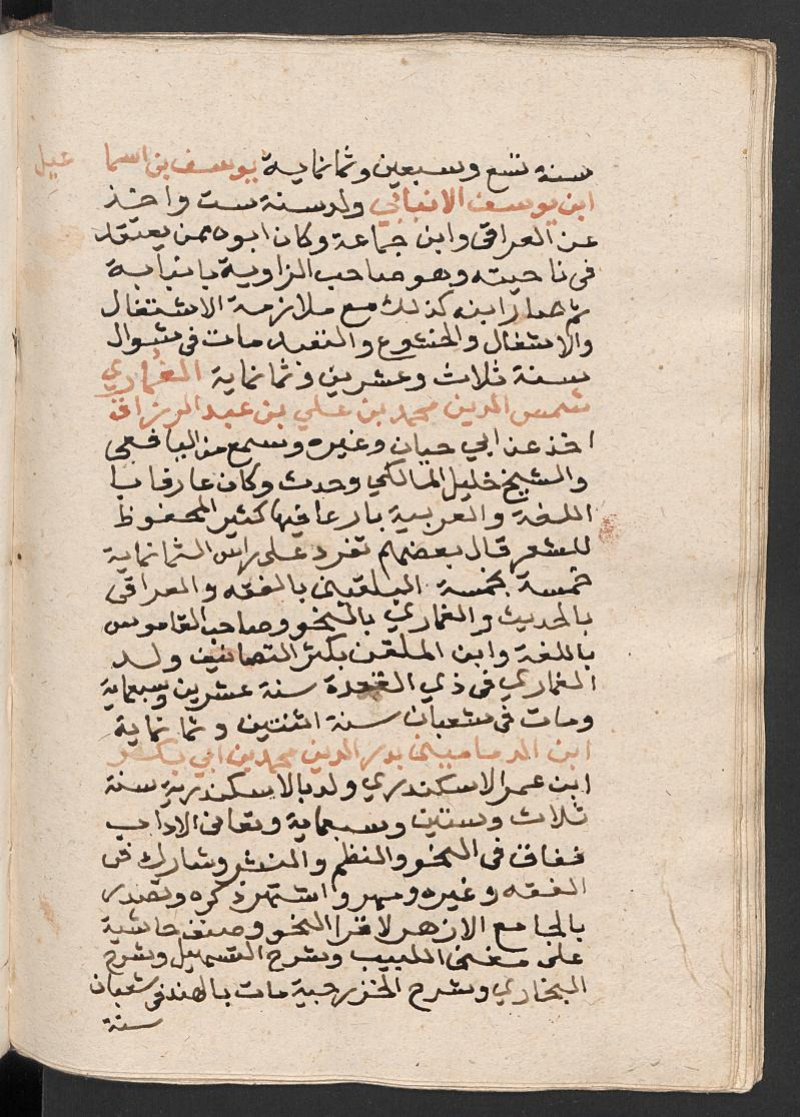 سنة تسع وسبعين وثمانماية يوسف بن اسما عيل
ابن يوسف الانبابي ولد سنة ست واخذ
عن العراقي وابن جماعة وكان ابوه ممن يعتقد
في ناحيته وهو صاحب الزاوية بانبابة
ثم صار ابنه كذلك مع ملازمة الاشتغال
والاشغال والخشوع والتعبد مات في شوال
سنة ثلاث وعشرين وثمانماية الغماري
شمس الدين محمد بن علي بن عبد الرزاق
اخذ عن ابي حيان وغيره وسمع من اليافعي
والشيخ خليل المالكي وحدث وكان عارفا با
اللغة والعربية بارعا فيها كثير المحفوظ
للشعر قال بعضهم تفرد على راس الثمانماية
خمسة بخمسة البلقيني بالفقه والعراقي
بالحديث والغماري بالنحو وصاحب القاموس
باللغة وابن الملقن بكثر التصانيف ولد
الغماري في ذي القعدة سنة عشرين وسبعماية
ومات في شعبان سنة اثنتين وثمانماية
ابن الدماميني بدر الدين محمد بن ابي بكر
ابن عمر الاسكندري ولد بالاسكندرية سنة
ثلاث وستين وسبعماية وتعانى الاداب
ففاق في النحو والنظم والنثر وشارك في
الفقه وغيره ومهر واشتهر ذكره وتصدر
بالجامع الازهر لاقرا النحو وصنف حاشية
على مغني اللبيب وشرح التسهيل وشرح
البخاري وشرح الخزرجية مات بالهند في شعبان
سنة